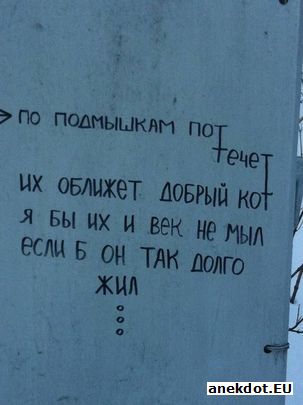 → по подмышкам пот
течет
их оближет добрый кот
я бы их и век не мыл
если б он так долго
жил
anekdot.EU